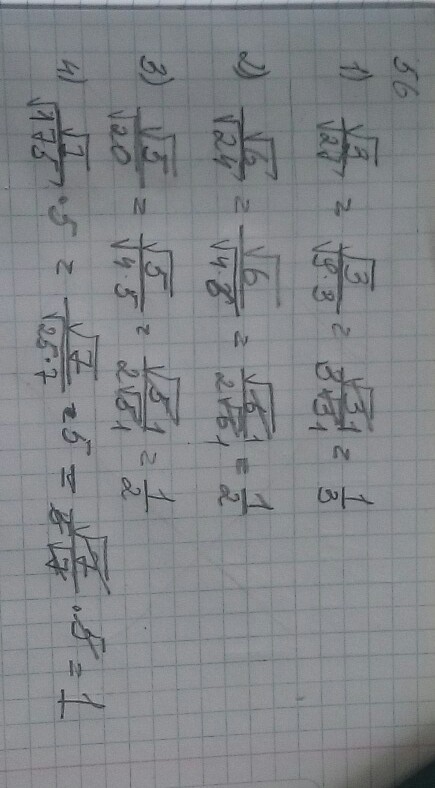 56
1) √3/√27 = √3/√9·3 = √3 1/3√3 1 = 1/3
2) √6/√24 = √6/√4·6 = √6 1/2√6 1 = 1/2
3) √5/√20 = √5/√4·5 = √5 1/2√5 1 = 1/2
4) √7/√175 · 5 = √7/√25·7 · 5 = √7/5√7 · 5 = 1